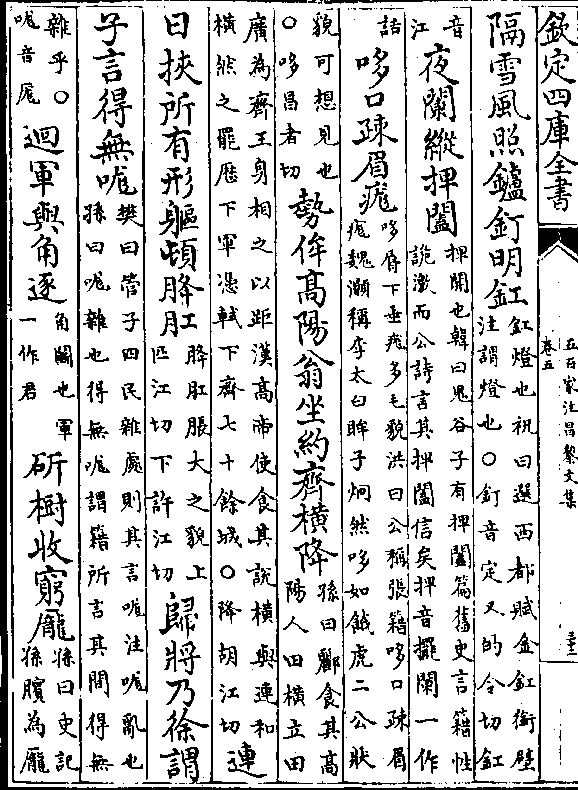 欽定四庫全書
五百家注昌黎文集
卷五
隔雪風照鑪釭明缸缸燈也祝曰選西都賦金缸銜壁
注謂燈也○釘音定又的令切缸
音
江
夜闌縱捭闔捭開也韓曰鬼谷子有捭闔篇舊史言籍性
詭激而公詩言其捭闔信矣捭音擺闌一作
話
哆口疎眉厖哆脣下垂厖多毛貌洪曰公稱張籍哆口疎眉
厖魏灝稱李太白眸子炯然哆如餓虎二公狀
貌可想見也
○哆昌者切
勢侔高陽翁坐約齊橫降孫曰酈食其高
陽人田橫立田
廣為齊王身相之以距漢高帝使食其說橫與連和
橫然之罷歷下軍憑軾下齊七十餘城○降胡江切
連
日挾所有形軀頓胮肛胮肛脹大之貌上
匹江切下許江切
歸將乃徐謂
子言得無哤樊曰管子四民雜處則其言哤注哤亂也
孫曰哤雜也得無哤謂籍所言其間得無
雜乎○
哤音厖
迴軍與角逐角鬭也軍
一作君
斫樹收窮龐孫曰史記
孫臏為龐